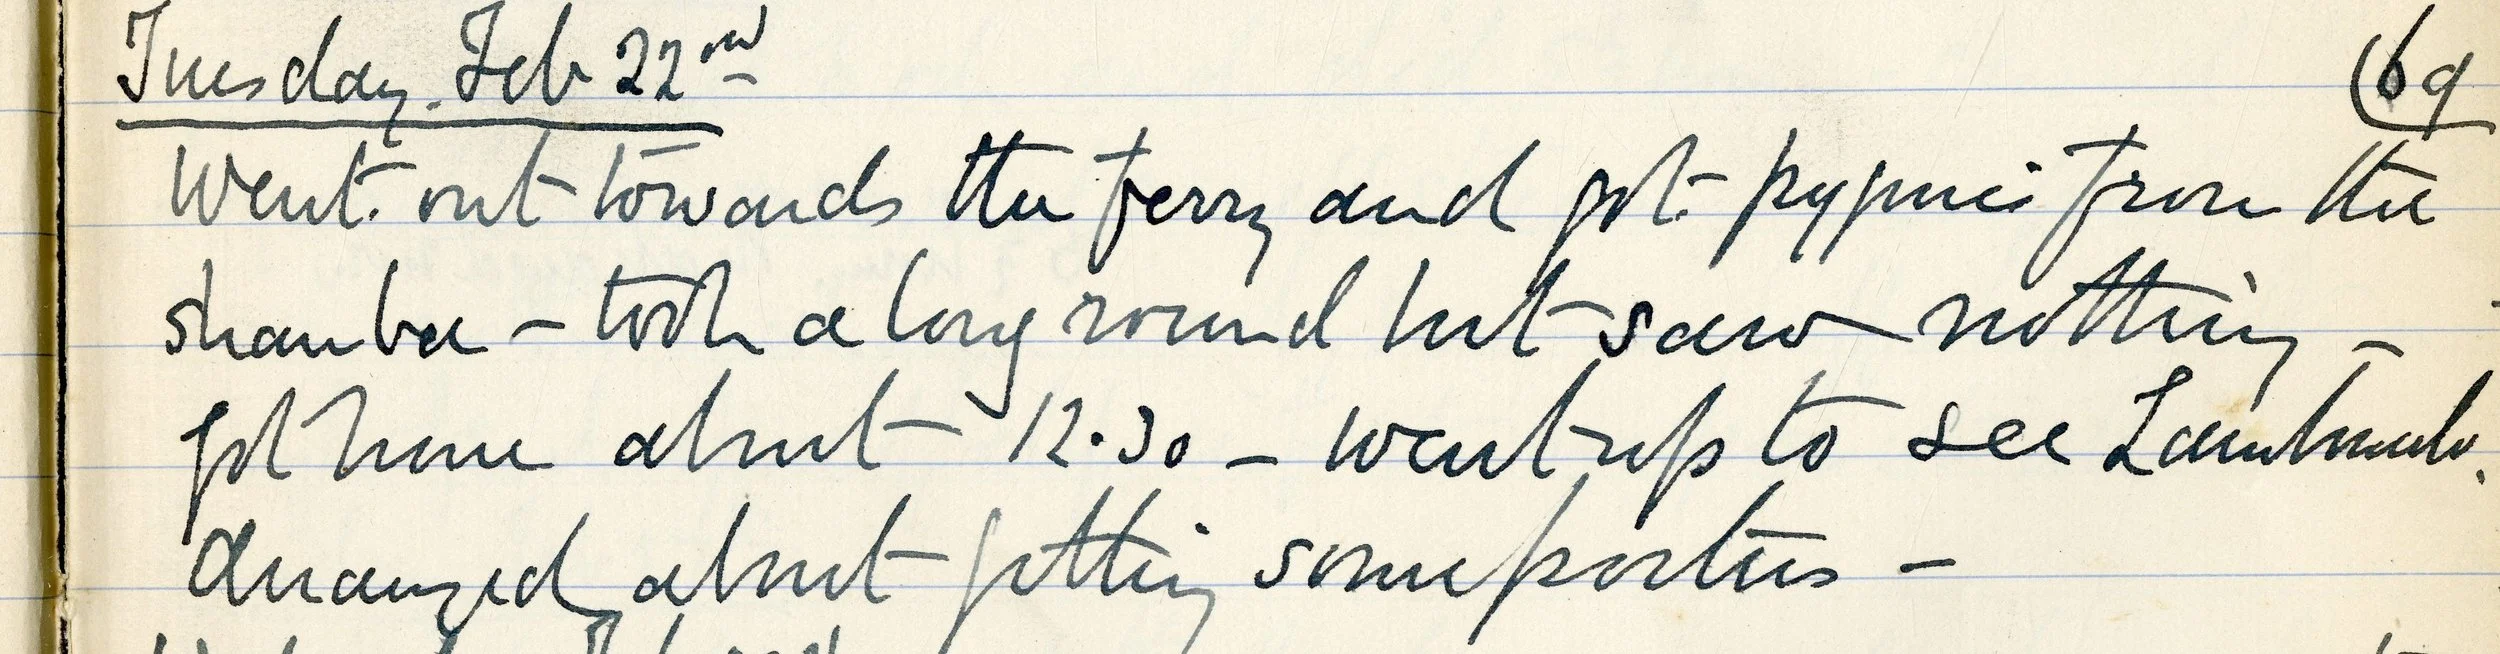 Tuesday. Feb 22nd (69
Went out towards the ferry and got pypmeis from the
shamba – took a long round but saw nothing –
got home about 12.30 – went up to see
Arranged about getting some porters –